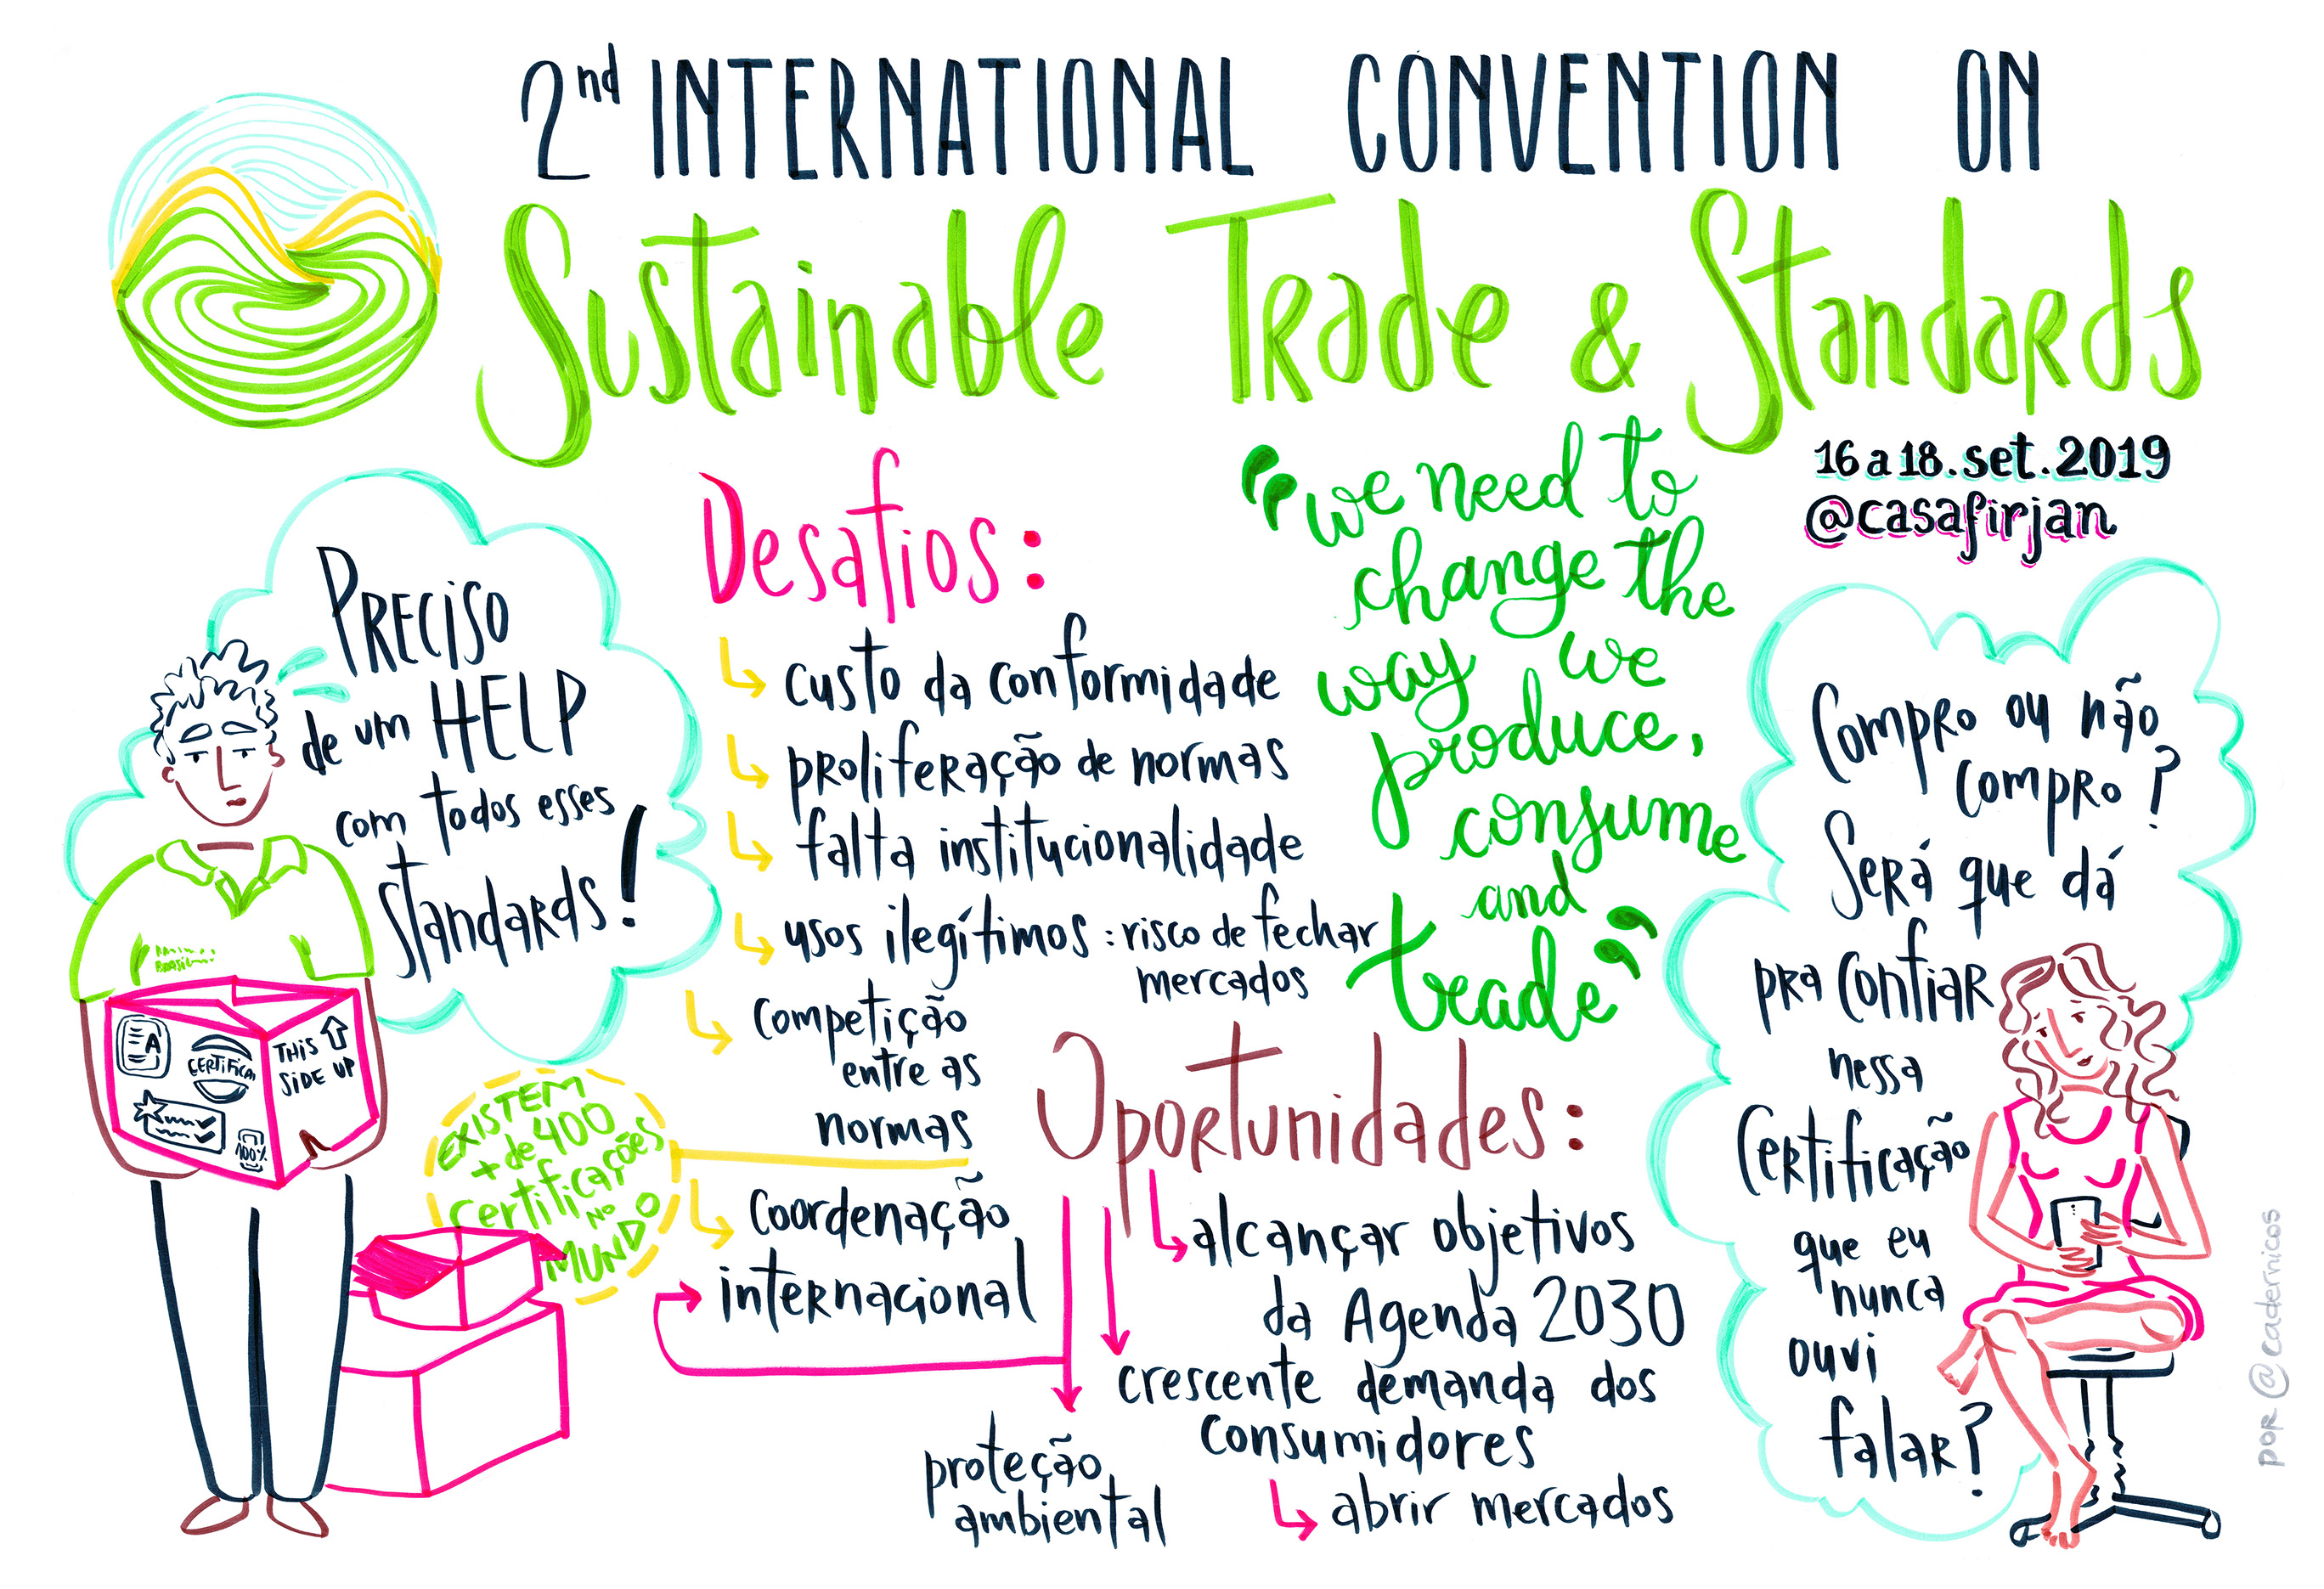 2nd INTERNATIONAL CONVENTION ON
Sustainable Trade & Standards
16 a 18.set.2019
@casafirjan
PRECISO
de um HELP
com todos esses
standards!
THIS
SIDE UP
A
100%
EXISTEM
+ de 400
certificações
NO
MUNDO
Desafios:
custo da conformidade
proliferação de normas
falta institucionalidade
usos ilegítimos: risco de fechar
mercados
competição
entre as
normas
Coordenação
internacional
"we need to
change the
way we
produce,
consume
and
trade"
Oportunidades:
alcançar objetivos
da Agenda 2030
crescente demanda dos
consumidores
abrir mercados
proteção
ambiental
Compro ou não
compro?
Será que dá
pra confiar
nessa
Certificação
que eu
nunca
ouvi
falar?
por @cadernicos